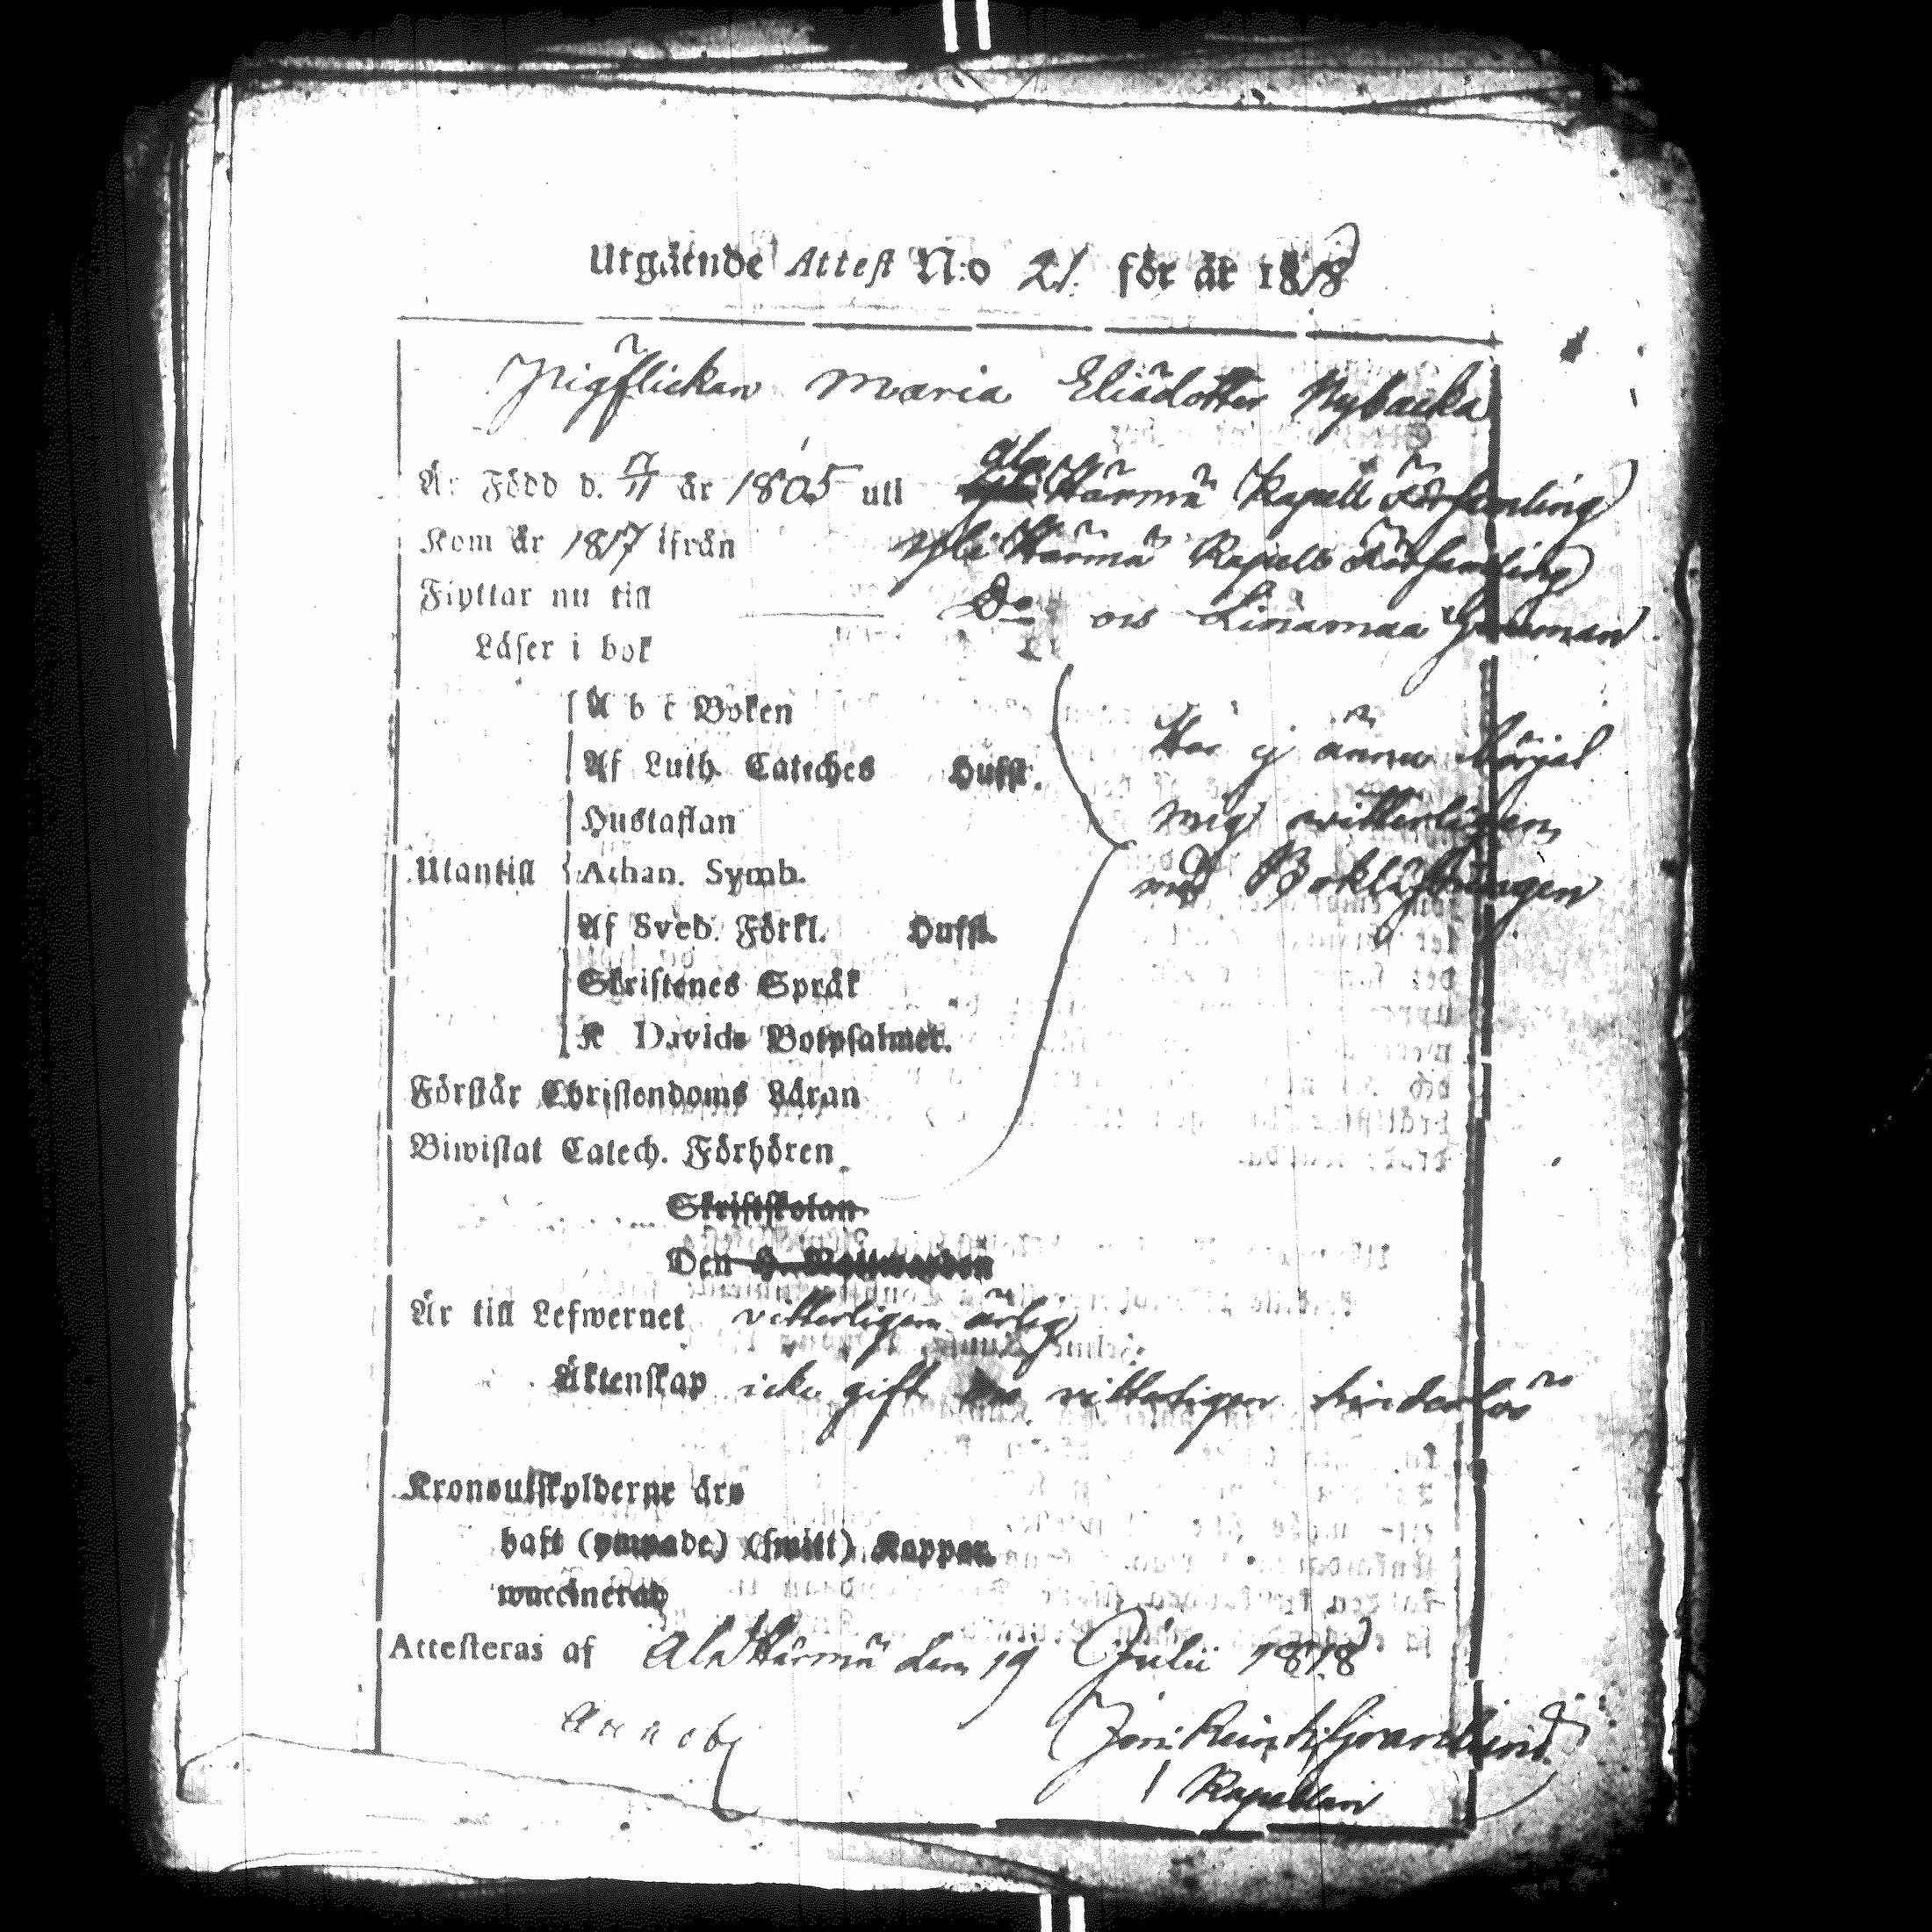 Utgående Attest N:o 21. för år 1818
Pigflickan Maria Eliädotter Nybacka
Är Född d. 17/11 år 1805 uti Ala Härmä Kapell Församling
Kom år 1817 ifrån Yli Härmä Kapells Församling
Flyttar nu till Do os Linamaa
Läser i bok
A b c Boken
Har ej ännu börjat
Af Luth. Cateches Hufst.
Hustaflan
mig witterligen
Utantill Athan. Symb.
med Bokläsningen
Af Sveb. Förkl. Hufst.
Skriftenes Språk
K Davids Botpsalmer.
Förstår Christendoms Läran
Biwistat Catech. Förhören
Skriftskolan
Den H. Nattwarden
Är till Lefwernet vitterligen ärlig
Äktenskap icke gift vitterligen hinderlös
Kronoutskylderne äro
haft (ympade) (smitt) Koppor.
waccinerad
Attesteras af Ala Härmä den 19 Julii 1818
Kapellan